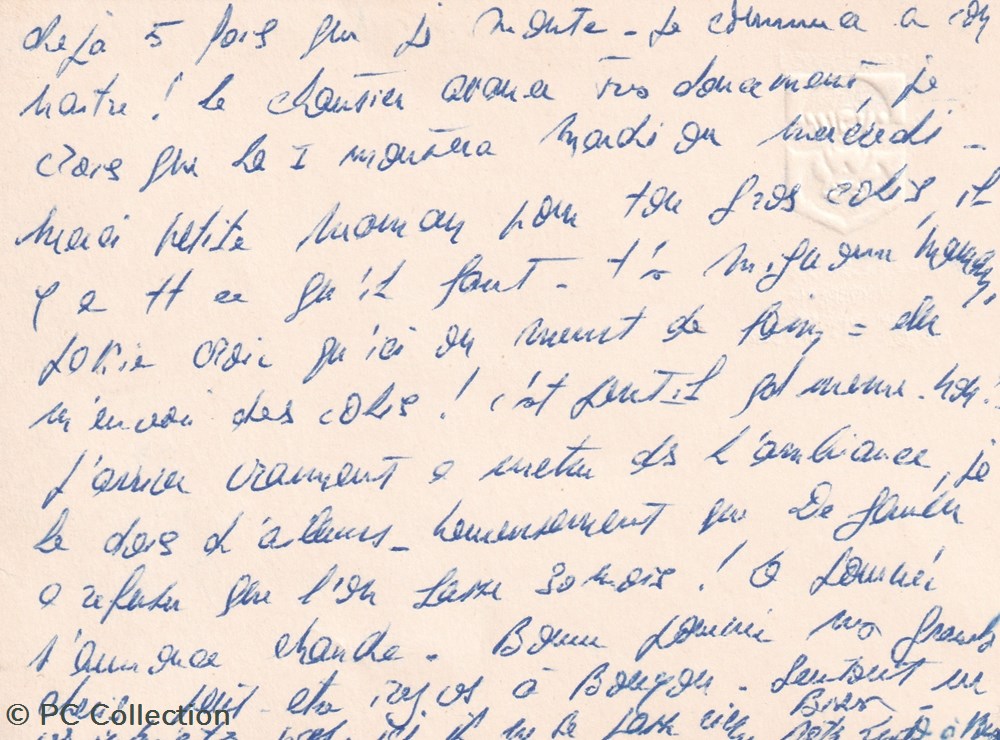 déjà 5 fois que je monte - je commence à con
naître ! Le chantier avance très doucement, je
crois que le I montera Mardi ou Mercredi -
Merci petite Maman pour ton gros colis, il
y a tt ce qu'il faut - t'es mignonne Maman,
croie qu'ici on meurt de faim = elle
m'envoie des colis ! c'est gentil qd meme. Non !
J'arrive vraiment à mettre de l'ambiance, je
le dois d'ailleurs - heureusement que De
a refusé que l'on fasse 30 mois ! La journée
s'annonce chaude - Bonne journée mes grands
chéris à Bouyon - Surtout
© PC Collection